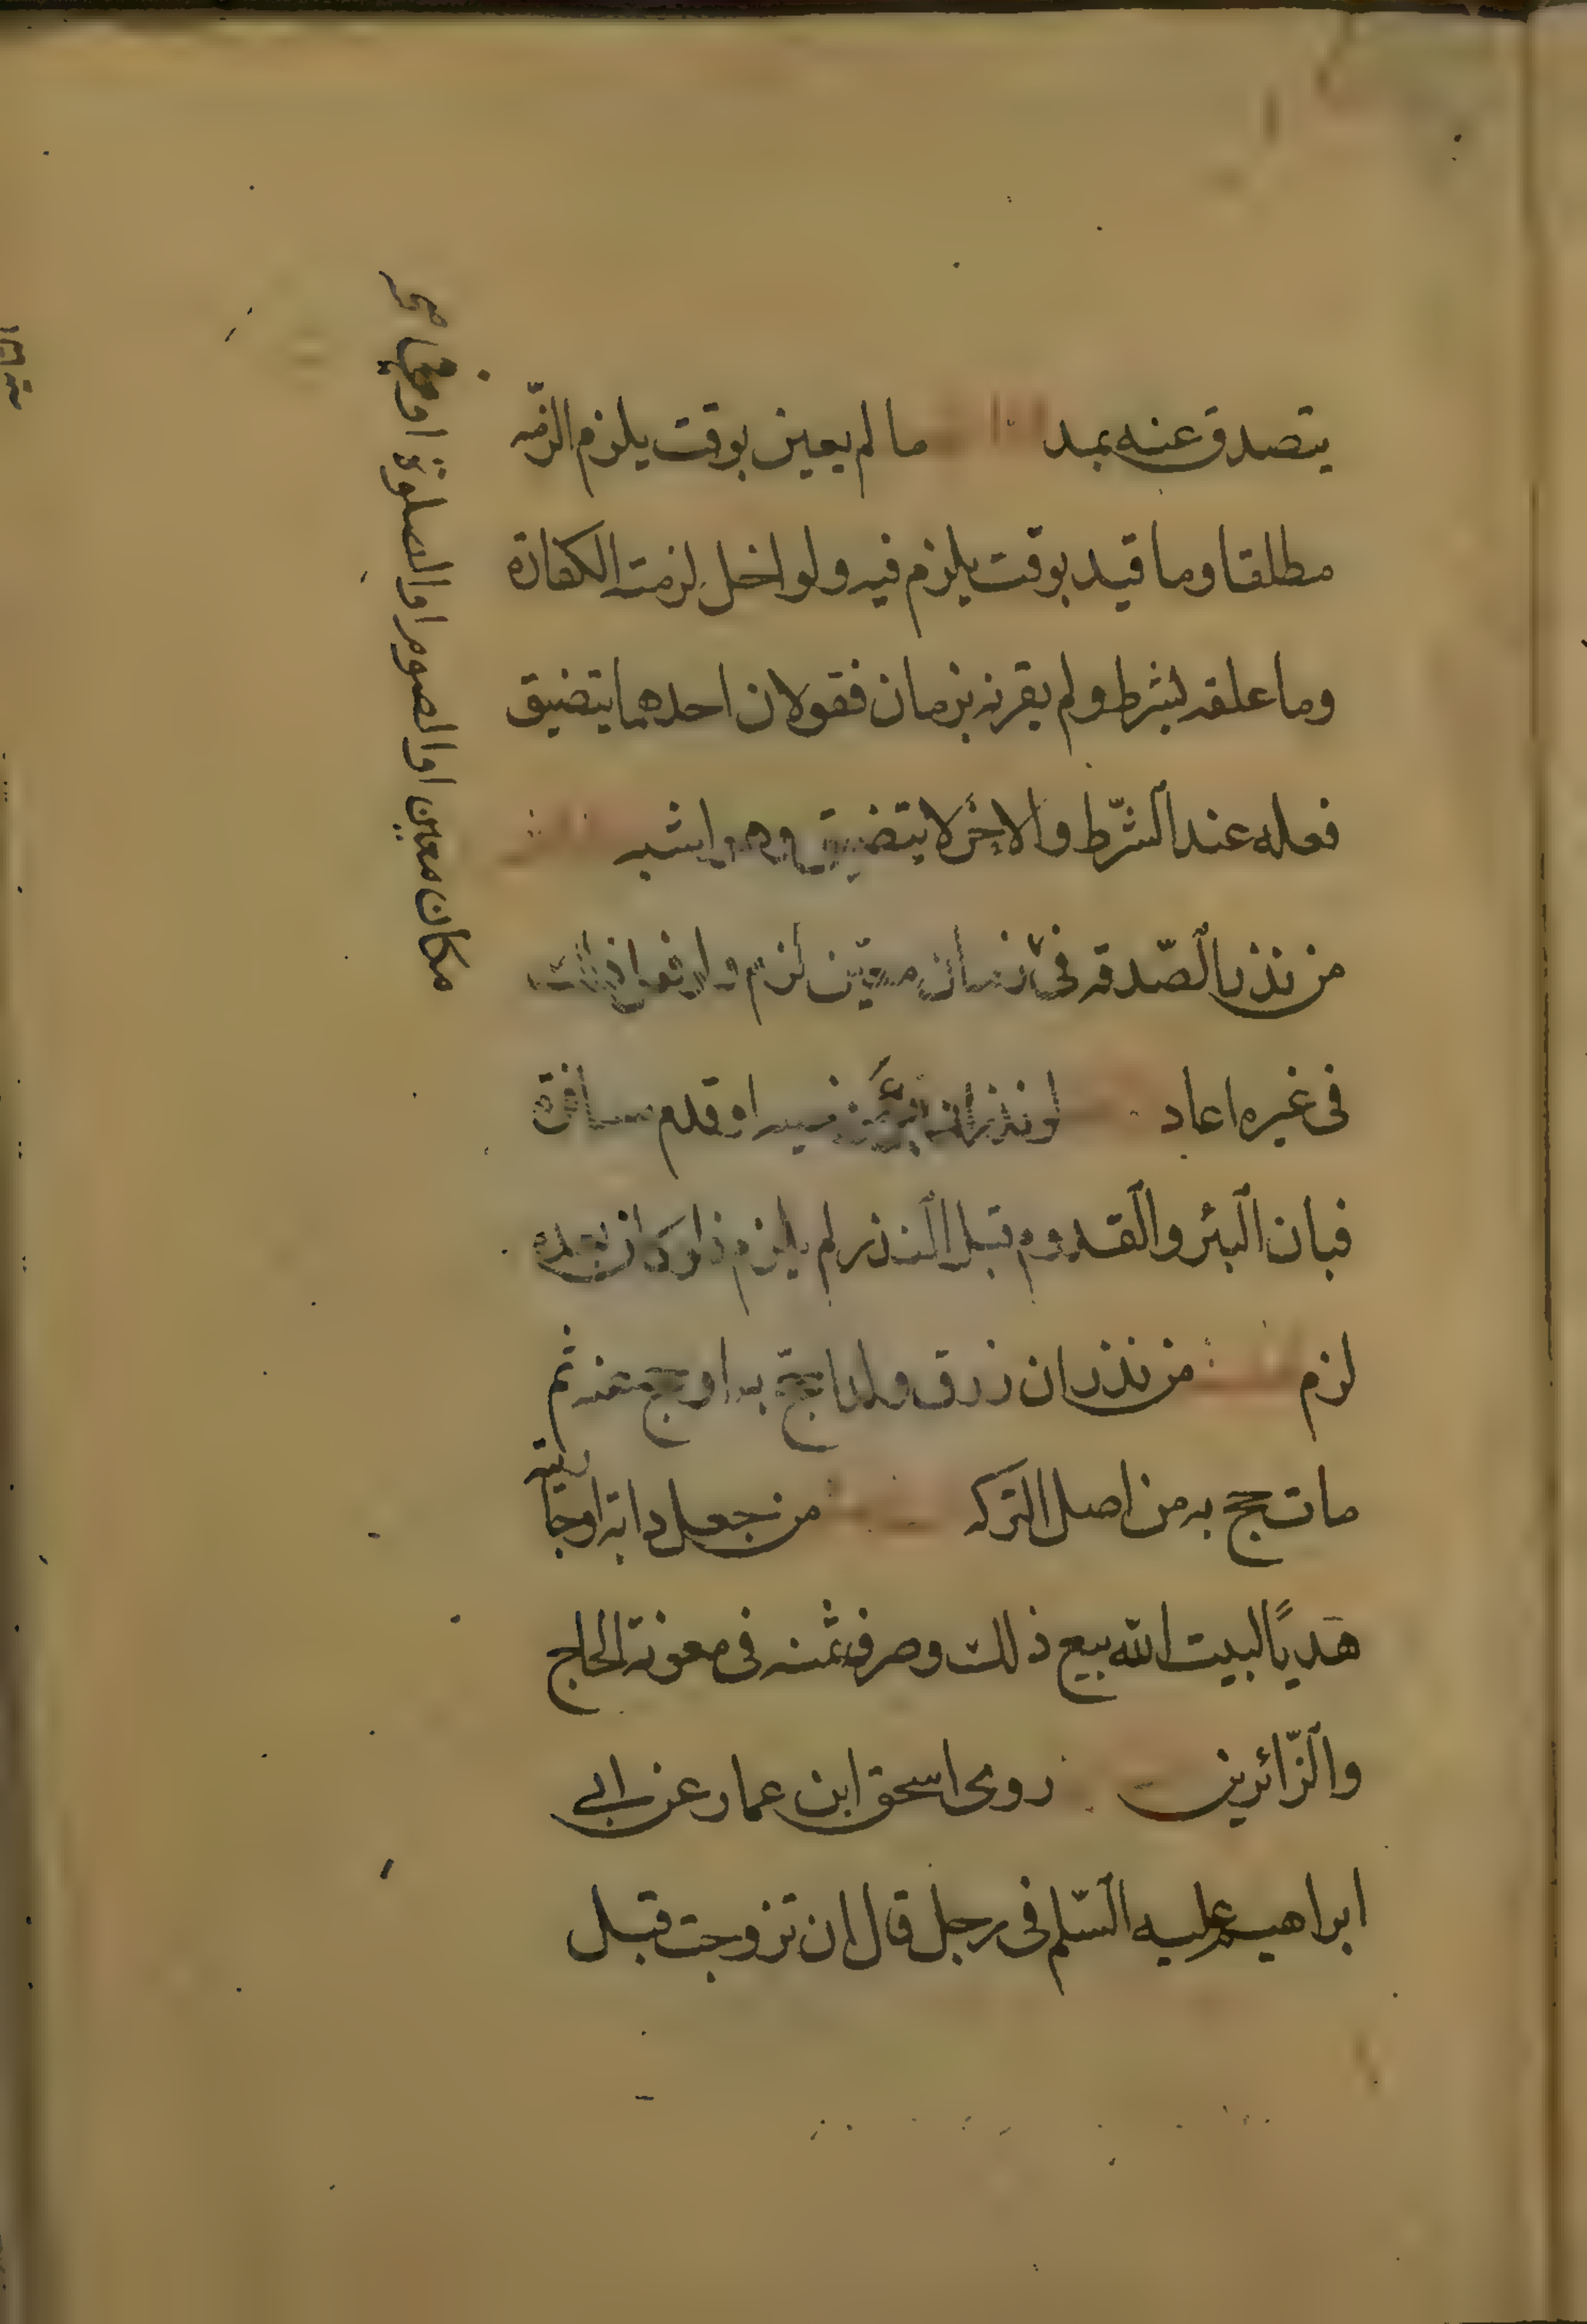 يتصدق عنه بمد ما لم يعين بوقت يلزم الذمه
مطلقا وما قيد بوقت يلزم فيه ولو اخل لزمته الكفارة
وما علقه بشرط ولم يقرنه بزمان فقولان احدهما يتضيق
فعله عند الشّرط والاخر لا يتضيق وهو اشبه
من نذر الصّدقه فى زمان معيّن لزم ولو فعل ذلك
فى غيره اعاد لو نذر ان برئ مريضه او قدم مسافره
فبان البئر والقدوم قبل النذر لم يلزم ذلو كان بعده
لزم من نذر ان رزق ولدا يحجّ به او يحج عنه ثم
مات حج به من اصل التركه من جعل دابته او جاريته
هديًا لبيت الله بيع ذلك وصرف ثمنه فى معونة الحاج
والزّائرين روى اسحق ابن عمار عن ابى
ابراهيم عليه السّلم فى رجل قال ان تزوجت قبل
مكان معين او الصوم او الصلوة او وقت صح